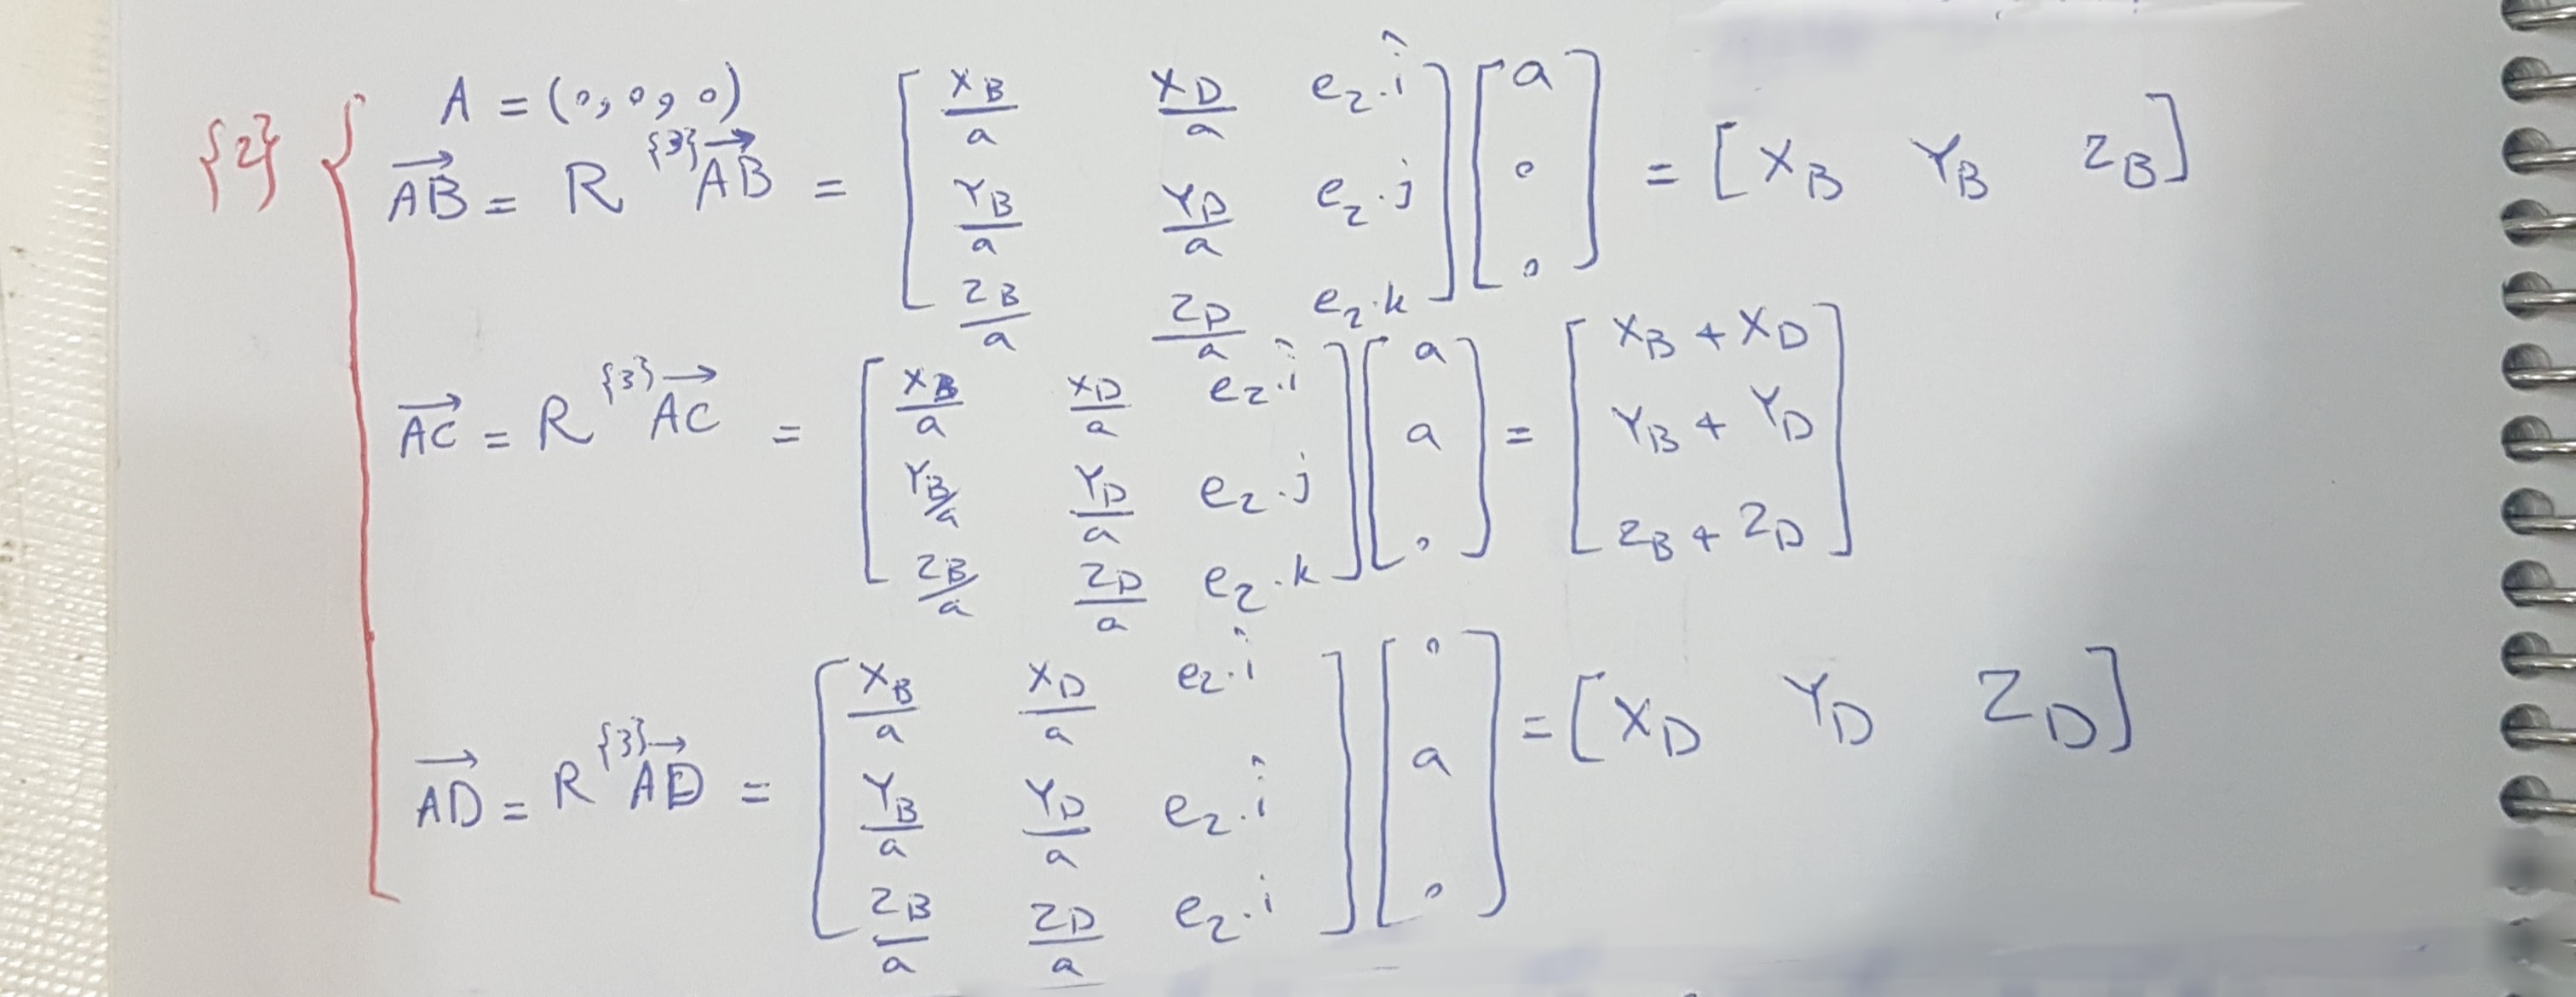 {2} { A = (0, 0, 0)
\overrightarrow{AB} = R ^{\{3\}}\overrightarrow{AB} = \begin{bmatrix} \frac{x_B}{a} & \frac{x_D}{a} & e_2.\hat{i} \\ \frac{y_B}{a} & \frac{y_D}{a} & e_2.j \\ \frac{z_B}{a} & \frac{z_D}{a} & e_2.k \end{bmatrix} \begin{bmatrix} a \\ 0 \\ 0 \end{bmatrix} = [x_B \quad y_B \quad z_B]
\overrightarrow{AC} = R ^{\{3\}}\overrightarrow{AC} = \begin{bmatrix} \frac{x_B}{a} & \frac{x_D}{a} & e_2.\hat{i} \\ \frac{y_B}{a} & \frac{y_D}{a} & e_2.j \\ \frac{z_B}{a} & \frac{z_D}{a} & e_2.k \end{bmatrix} \begin{bmatrix} a \\ a \\ 0 \end{bmatrix} = \begin{bmatrix} x_B + x_D \\ y_B + y_D \\ z_B + z_D \end{bmatrix}
\overrightarrow{AD} = R ^{\{3\}}\overrightarrow{AD} = \begin{bmatrix} \frac{x_B}{a} & \frac{x_D}{a} & e_2.\hat{i} \\ \frac{y_B}{a} & \frac{y_D}{a} & e_2.\hat{i} \\ \frac{z_B}{a} & \frac{z_D}{a} & e_2.i \end{bmatrix} \begin{bmatrix} 0 \\ a \\ 0 \end{bmatrix} = [x_D \quad y_D \quad z_D]